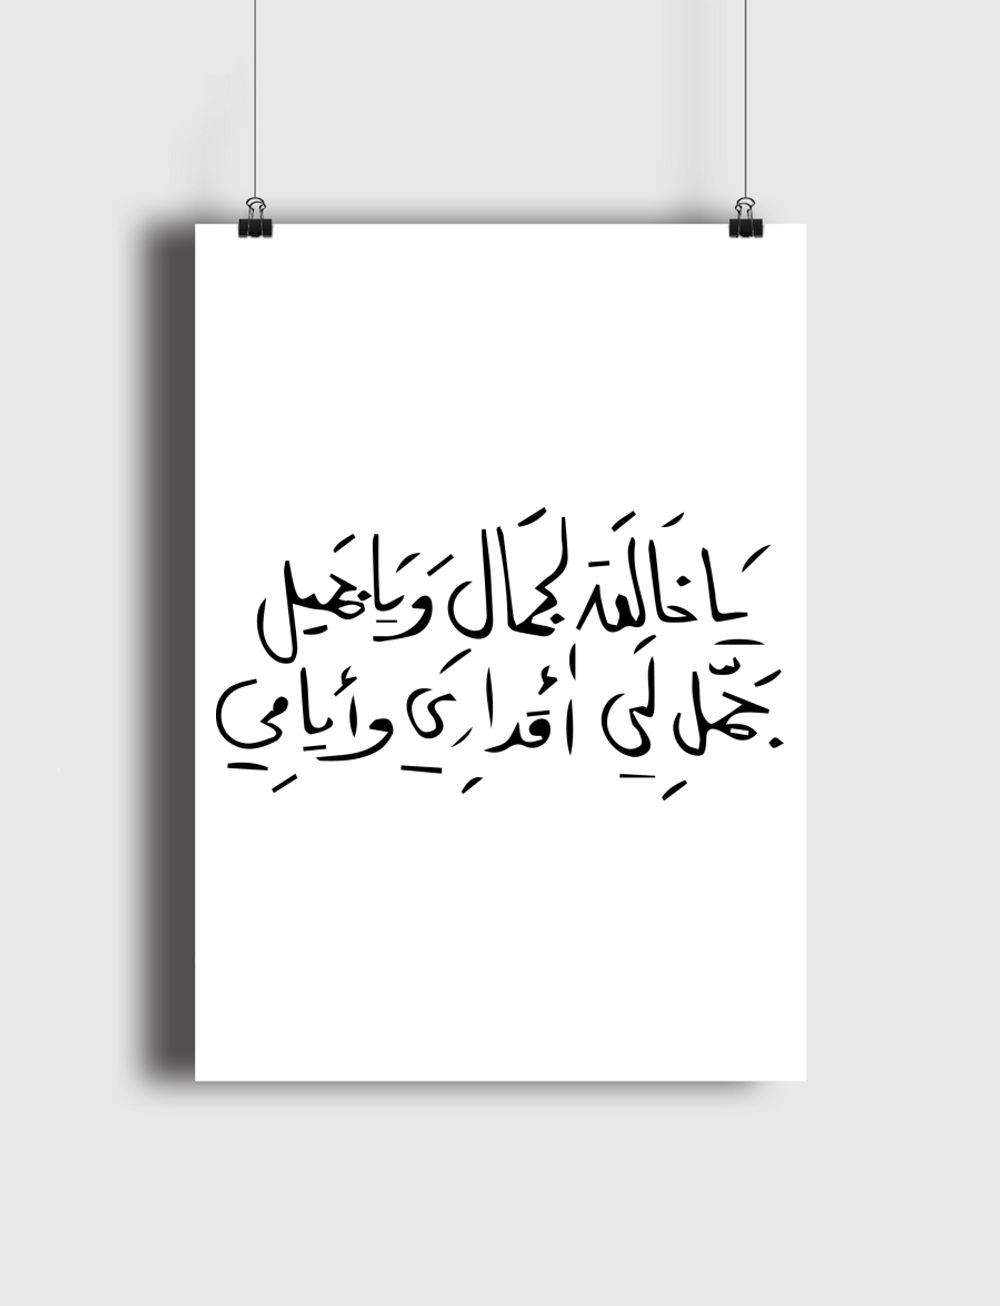 يَا خَالَقة لجمَال وَيَا جَميل
جَمّل لَي أقداري وأيامي